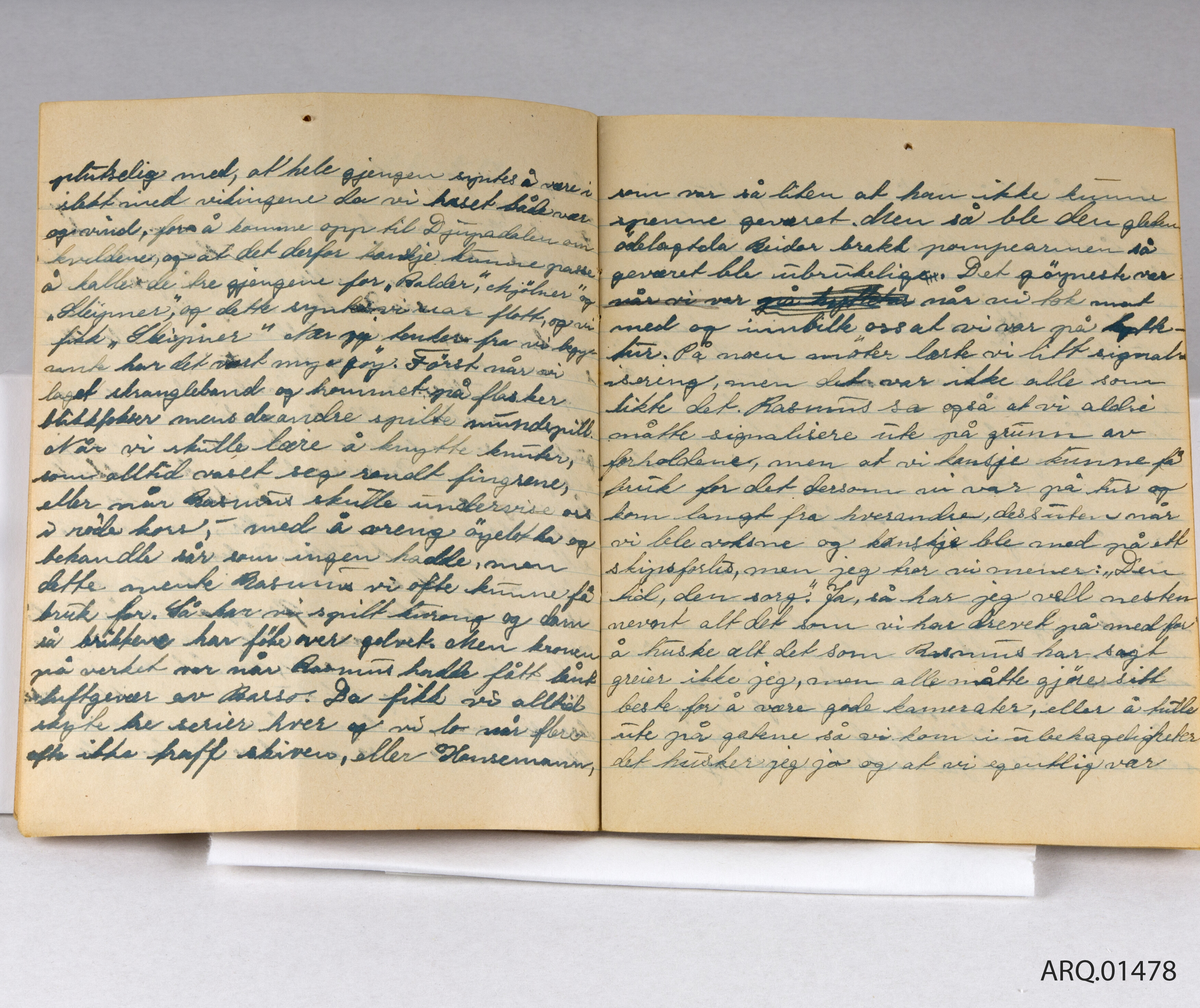 plutselig med, at hele gjengen syntes å være i
slekt med vikingene da vi haset både vær
og vind, for å komme opp til Djupadalen om
kveldene, og at det derfor kanskje kunne passe
å kalle de tre gjengene for „Balder", „Mjölner" og
„Sleipner", og dette syntes vi var flott, og vi
fikk „Sleipner" Når jeg tenker fra vi
har det vært mye gøy. Først når vi
laget strangleband og trommet på flasker
mens de andre spilte munnspill.
Når vi skulle lære å knytte knuter,
som alltid vaset seg rondt fingrene,
eller når Rasmus skulle undervise oss
i røde kors, – med å vreng öyelokka og
behandle sår som ingen hadde, men
dette mente Rasmus vi ofte kunne få
bruk for. Så har vi spilt korong og dam
så brikkene har føke over golvet. Men kronen
på verket var når Rasmus hadde fått lånt
luftgevær av Basso. Da fikk vi alltid
skyte tre serier hver og vi lo når flere
ikke traff skiven, eller Hansemann,
som var så liten at han ikke kunne
spenne geværet. Men så ble den gleden
ödelagt da Reidar brakk pompearmen så
geværet ble ubrukelig. Det göyneste var
når vi var på hytteter når vi tok mat
med og innbilte oss at vi var på hytte-
tur. På noen möter lærte vi litt signal-
isering, men det var ikke alle som
likte det. Rasmus sa også at vi aldri
måtte signalisere ute på grunn av
forholdene, men at vi kansje kunne få
bruk for det dersom vi var på tur og
kom langt fra hverandre, dessuten når
vi ble voksne og kanskje ble med på ett
skipsforlis, men jeg tror vi mener: „Den
tid, den sorg". Ja, så har jeg vell nesten
nevnt alt det som vi har drevet på med for
å huske alt det som Rasmus har sagt
greier ikke jeg, men alle måtte gjöre sitt
beste for å være gode kamerater, eller å tulle
ute på gatene så vi kom i ubehageligheter
det husker jeg jo og at vi egentlig var
ARQ.01478